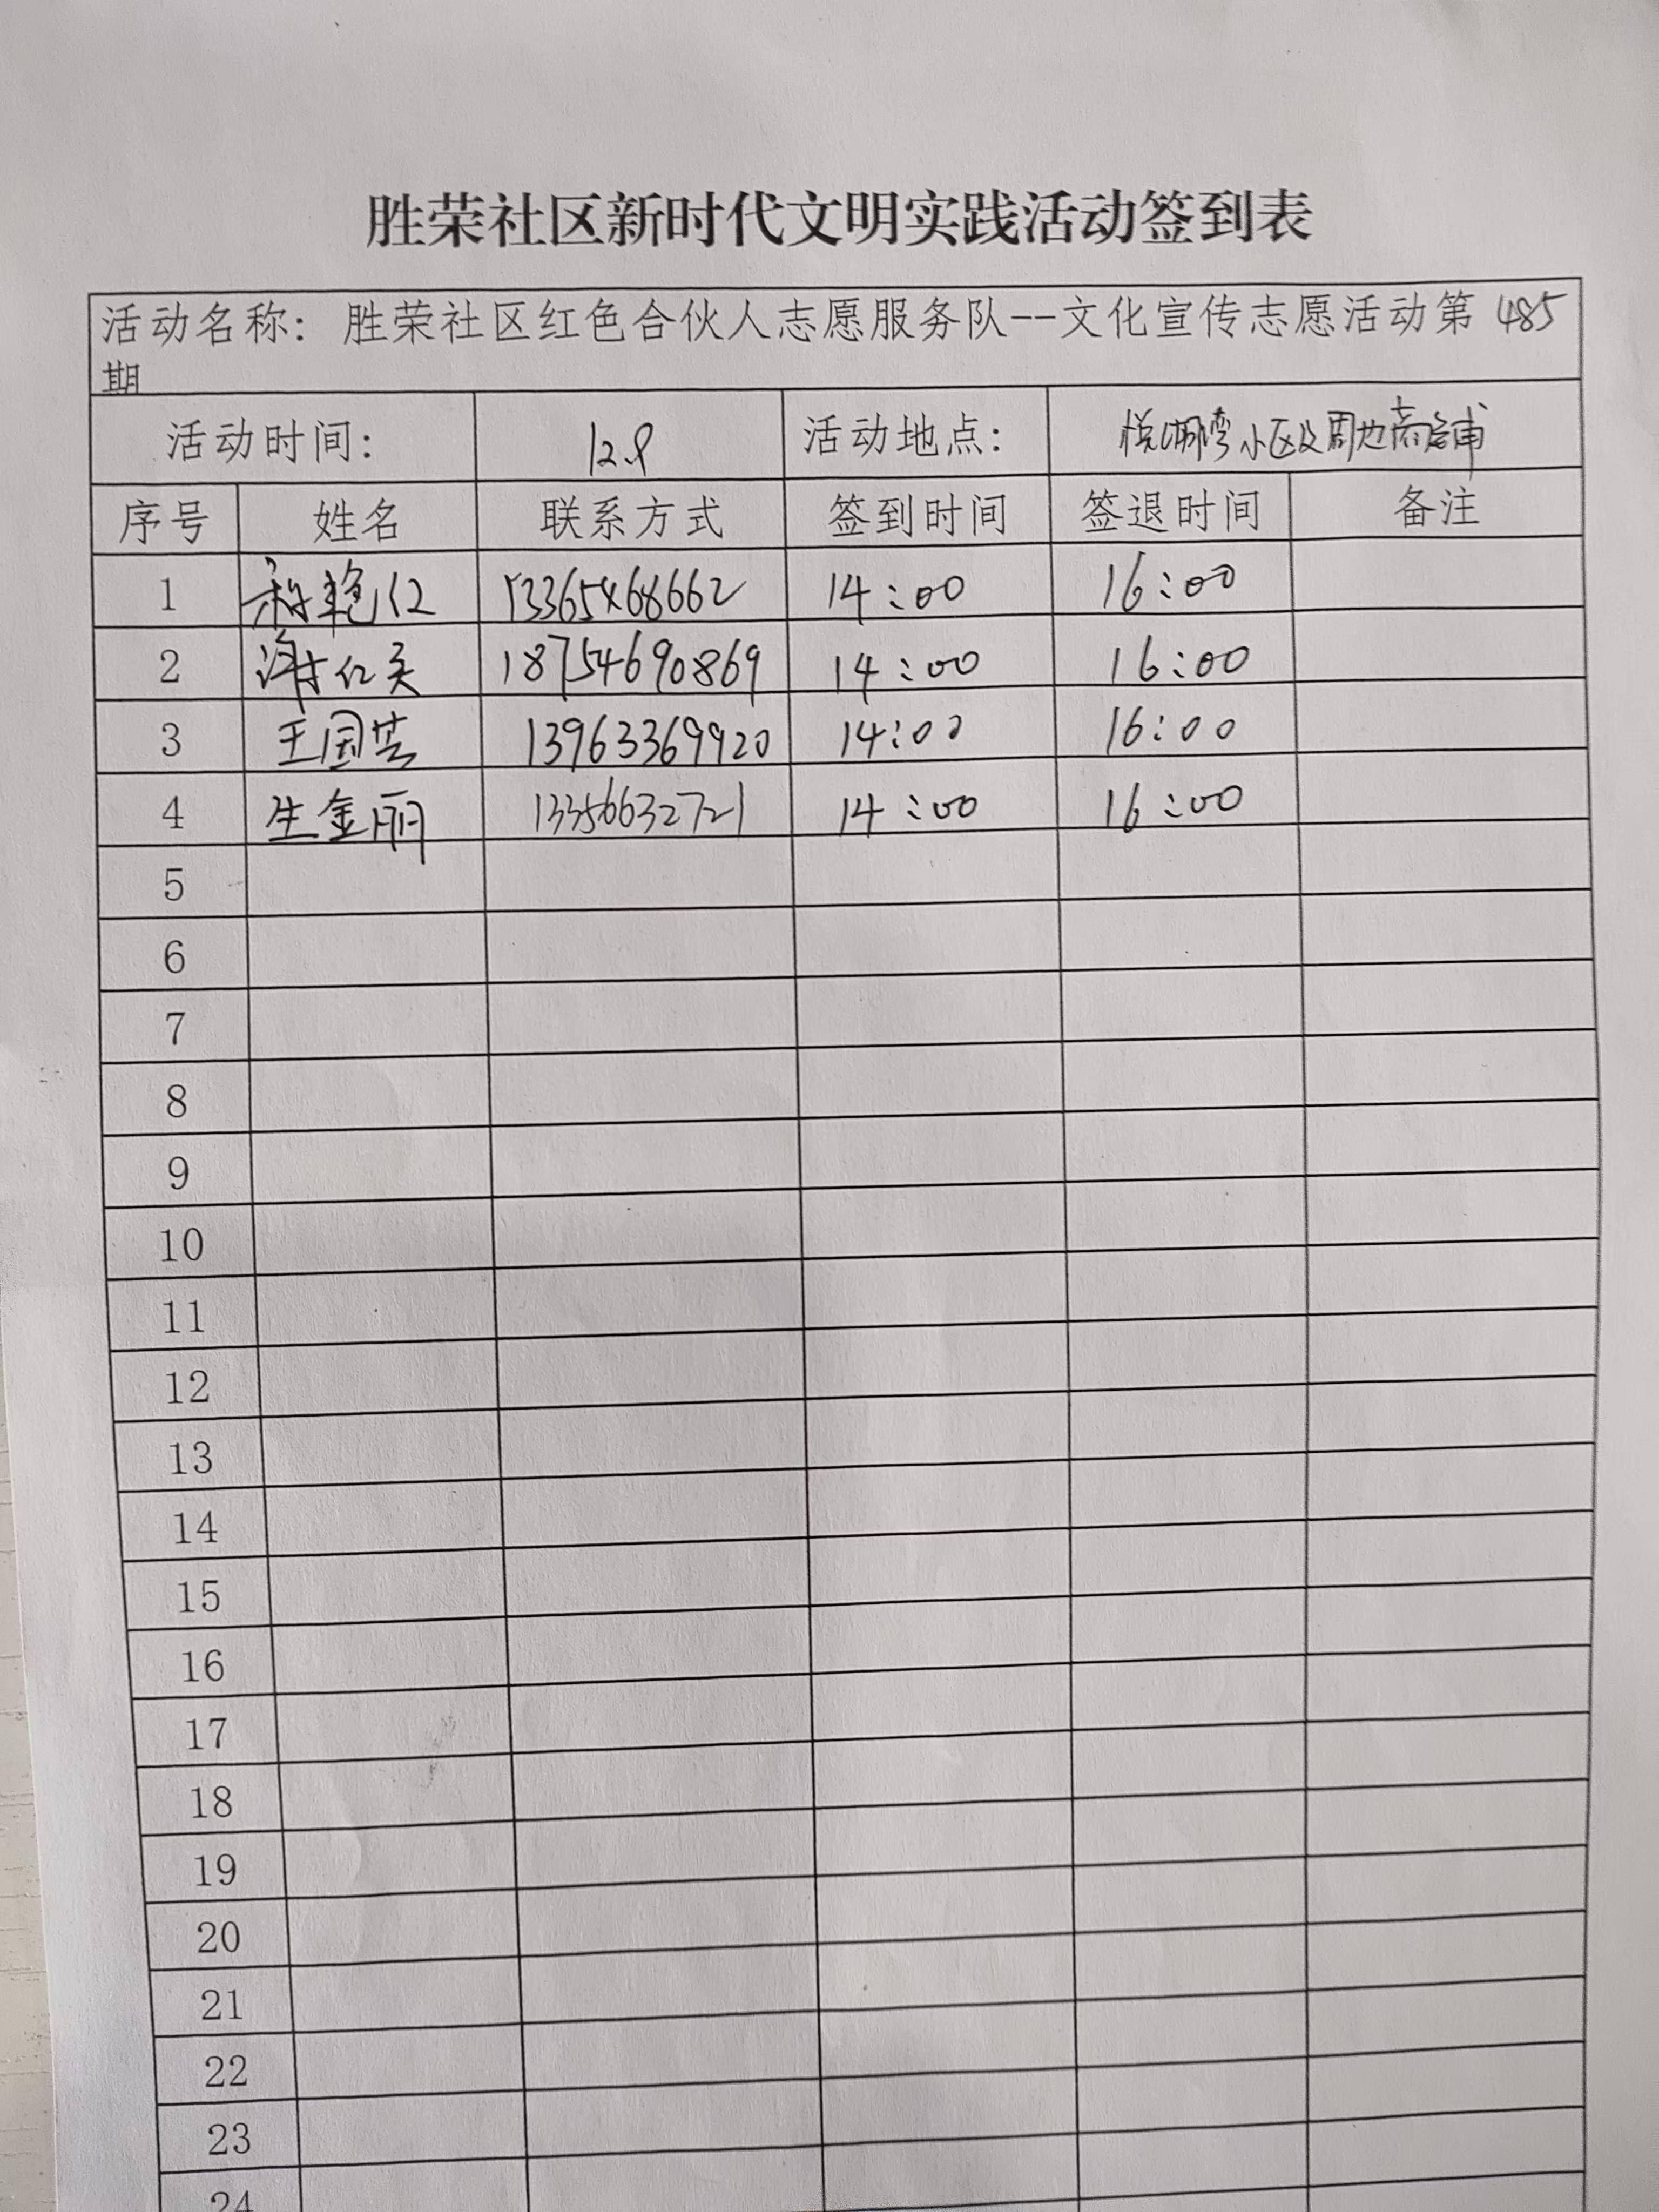 胜荣社区新时代文明实践活动签到表
活动名称：胜荣社区红色合伙人志愿服务队--文化宣传志愿活动第 485
期
活动时间： 12.8 活动地点： 悦湖湾小区及周边商铺
序号 姓名 联系方式 签到时间 签退时间 备注
1 艳红 13365468662 14:00 16:00
2 18754690869 14:00 16:00
3 王国芸 13963369920 14:00 16:00
4 生金丽 13356632721 14:00 16:00
5
6
7
8
9
10
11
12
13
14
15
16
17
18
19
20
21
22
23
24